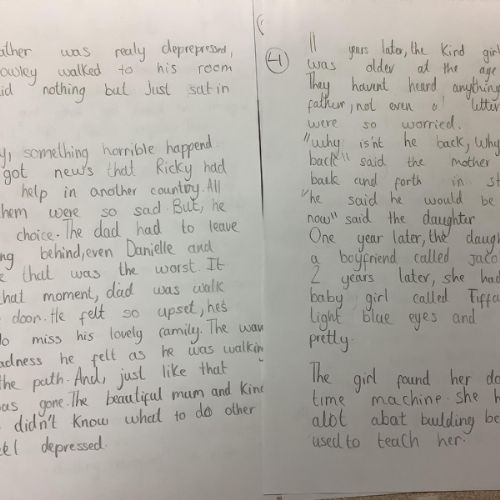 ather was realy deprepressed,
owley walked to his room
id nothing but Just sat in
y, something horrible happend.
got news that Ricky had
help in another country. All
them were so sad. But, he
choice. The dad had to leave
ng behind, even Danielle and
e that was the worst. It
that moment, dad was walk
door. He felt so upset, he's
o miss his lovely family. The
adness he felt as he was walkin
the path. And, just like that
as gone. The beautiful mum and kind
didn't know what to do other
eel depressed.
4
11 years later, the kind girl
was older at the age
They havent heard anything
father, not even a letter
were so worried.
"why isn't he back, why
back" said the mother
back and forth in
"he said he would be
now" said the daughter
One year later, the daugh
a boyfriend called Jaco
2 years later, she had
baby girl called Tiffa
light blue eyes and
pretty.
The girl found her da
time machine. she h
alot abat building be
used to teach her.